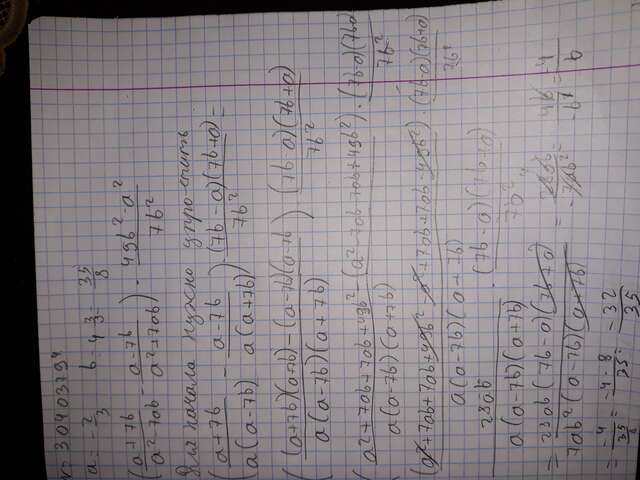 N= 3040379⁴
a = -2/3 b = 4 3/8 = 35/8
((a+7b)/(a²-7ab) - (a-7b)/(a²+7ab)) · (49b²-a²)/(7b²)
Для начала нужно упростить
((a+7b)/(a(a-7b)) - (a-7b)/(a(a+7b))) · ((7b-a)(7b+a))/(7b²) =
(((a+7b)(a+7b)-(a-7b)(a-7b)/(a(a-7b)(a+7b))) · ((7b-a)(7b+a))/(7b²)
((a²+7ab+7ab+49b²-(a²-7ab-7ab+49b²)/(a(a-7b)(a+7b)) · ((7b-a)(7b+a)/(7b²)
(a²+7ab+7ab+49b²-a²+7ab+7ab-49b²)/(a(a-7b)(a+7b)) · ((7b-a)(7b+a))/(7b²)
28ab/(a(a-7b)(a+7b)) · ((7b-a)(7b+a))/(7b²)
= (28ab(7b-a)(7b+a))/(7ab²(a-7b)(a+7b)) = 28ab/(-7ab²) = 4b/(-b²) = -4/b
= -4/(35/8) = (-4·8)/35 = -32/35